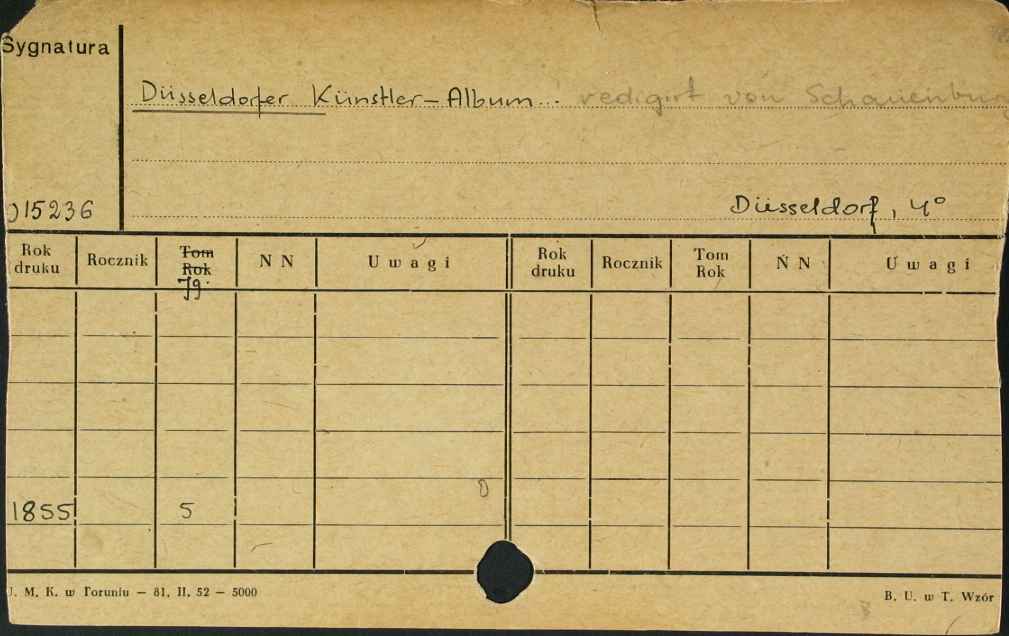 Sygnatura
Düsseldorfer Künstler-Album... redigirt von Schauenburg
015236
Düsseldorf, 4°
Rok druku Rocznik Tom Rok Jg. N N Uwagi Rok druku Rocznik Tom Rok N N Uwagi
1855 5
0
J. M. K. w Toruniu — 81, II, 52 — 5000
B. U. w T. Wzór